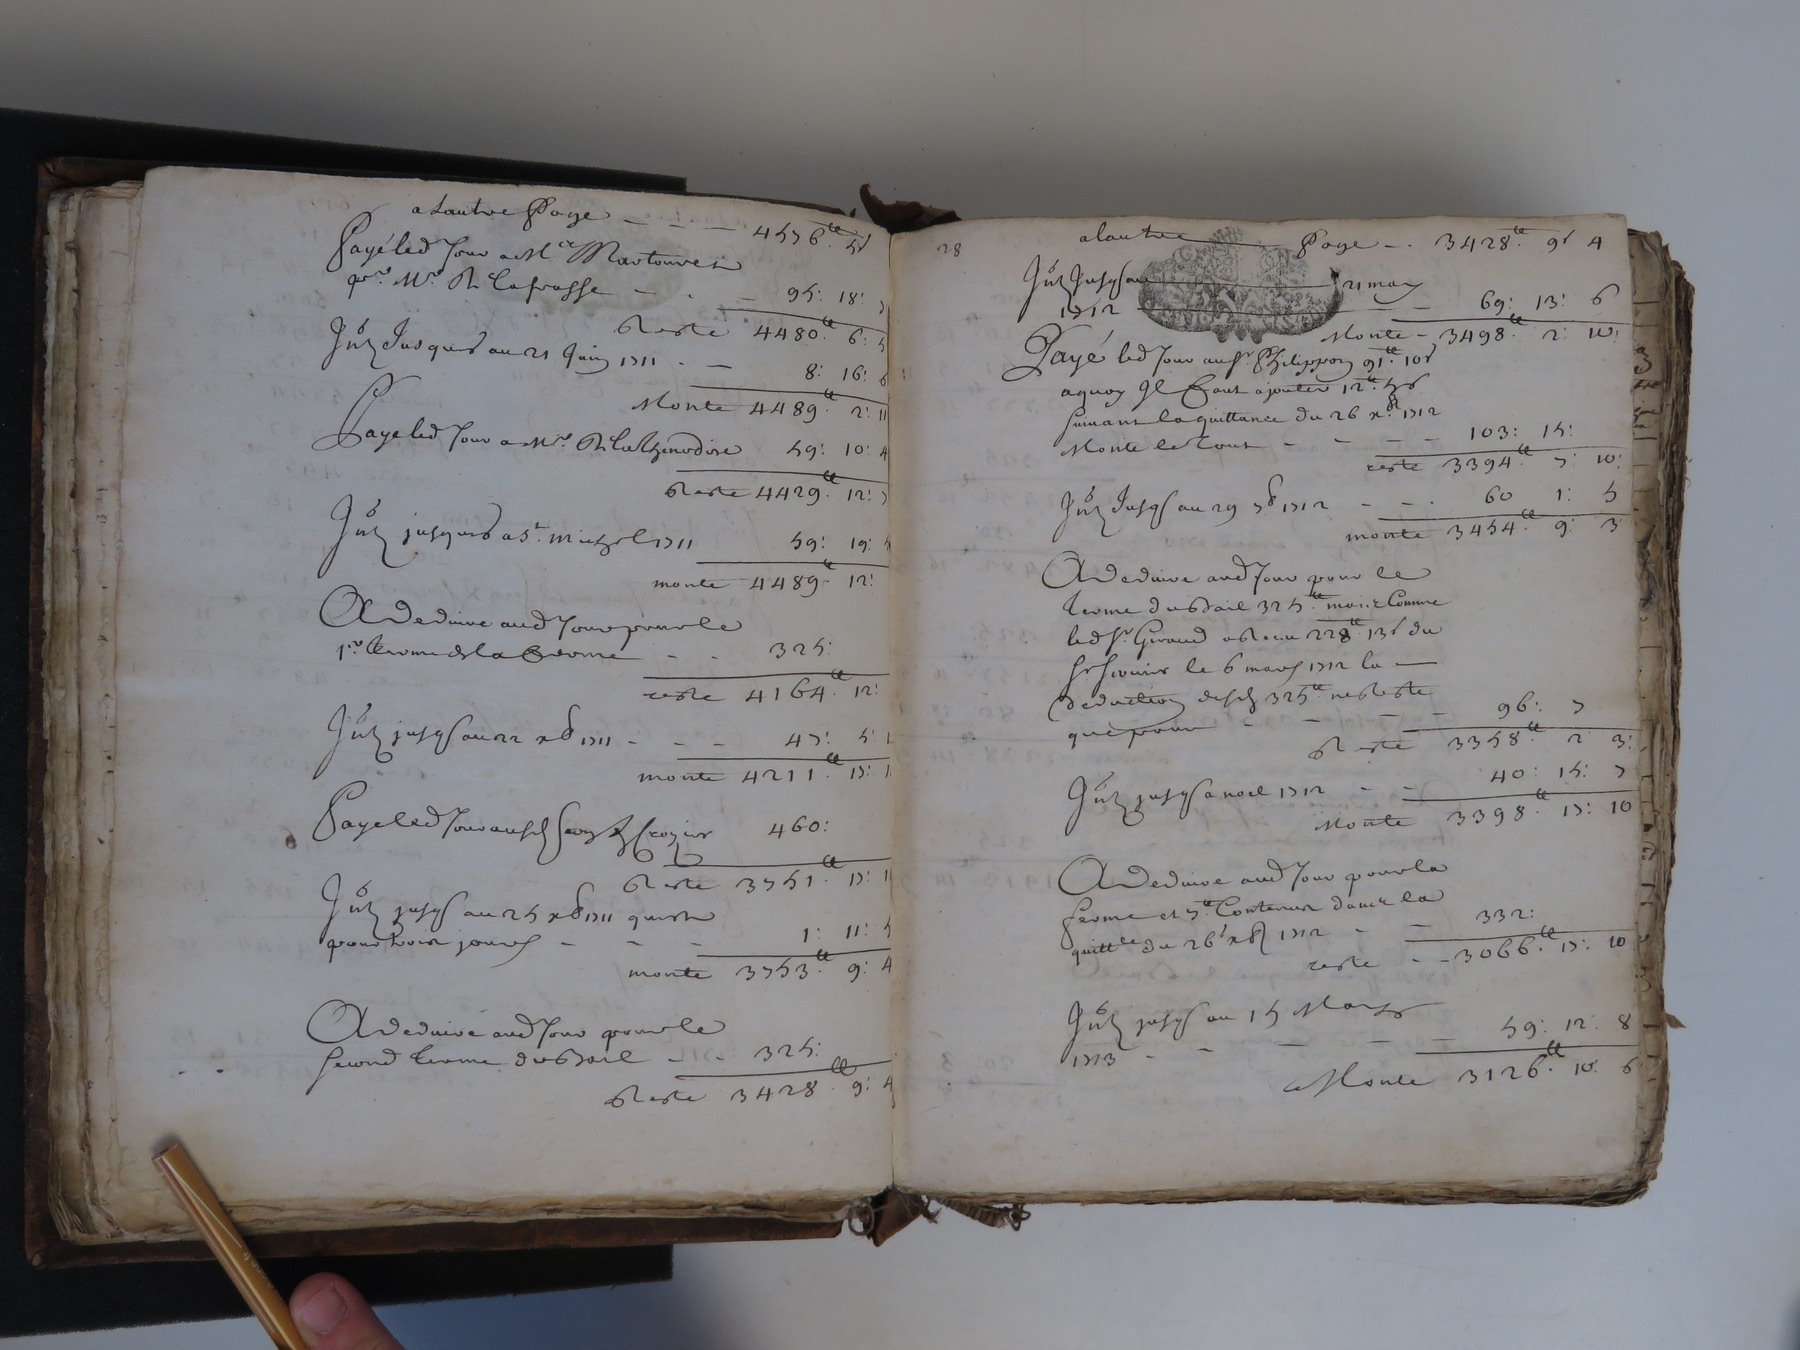 a Lautre Page - - - 4576.tt 5s
Payé led Jour a Mr
pr. Mr. De Lafrasse - - - 95: 18: 7
Reste 4480tt 6: 5
Intz Jusques au 21 Juin 1711 - - 8: 16: 6
Monte 4489tt 2: 11
Paye led Jour a Mr. De 59: 10: 4
Reste 4429tt 12: 7
Intz jusques a St. Michel 1711 59: 19: 5
monte 4489- 12:
A Deduire aud Jour pour le
1er. terme de la ferme - - 325:
reste 4164tt 12:
Intz jusqs au 22 xbre 1711 - - - 47: 5: 1
monte 4211tt 17: 1
Paye led Jour aux 460:
Reste 3751tt 17: 1
Intz jusqs au 25 xbre 1711 qui st
pour trois jours - - - 1: 11: 5
monte 3753tt 9: 4
A Deduire aud Jour pour le
second terme du Bail - - 325:
Reste 3428tt 9: 4
28
a lautre Page - . 3428tt 9s 4
Intz Jusqs au 21 mars
1712 - - 69: 13: 6
Monte - 3498tt 2: 10:
Payé led Jour au Sr. Philippon 91tt 10s
a quoy Il faut ajouter 12tt 5s
suivant la quittance du 26 xbre 1712
Monte le Tout - - - - 103: 15:
reste 3394tt 7: 10:
Intz Jusqs au 29 7bre 1712 - - - 60 1: 5
monte 3454tt 9: 3
A Deduire aud Jour pour le
terme du Bail 325tt mais Comme
led Sr. Giraud a Receu 228tt 13s du
Sr le 6 mars 1712 la
deduction desd 325tt ne Reste
que pour - - - - 96: 7
Reste 3358tt 2 3:
Intz jusqs a noel 1712 - - 40: 15: 7
Monte 3398tt 17: 10
A Deduire aud Jour pour la
ferme et 7tt Contenus dans la
quittce du 26s xbre 1712 - - 332:
reste - - 3066tt 17: 10
Intz jusqs au 15 Mars
1713 - - - - - 59: 12: 8
Monte 3126tt 10: 6